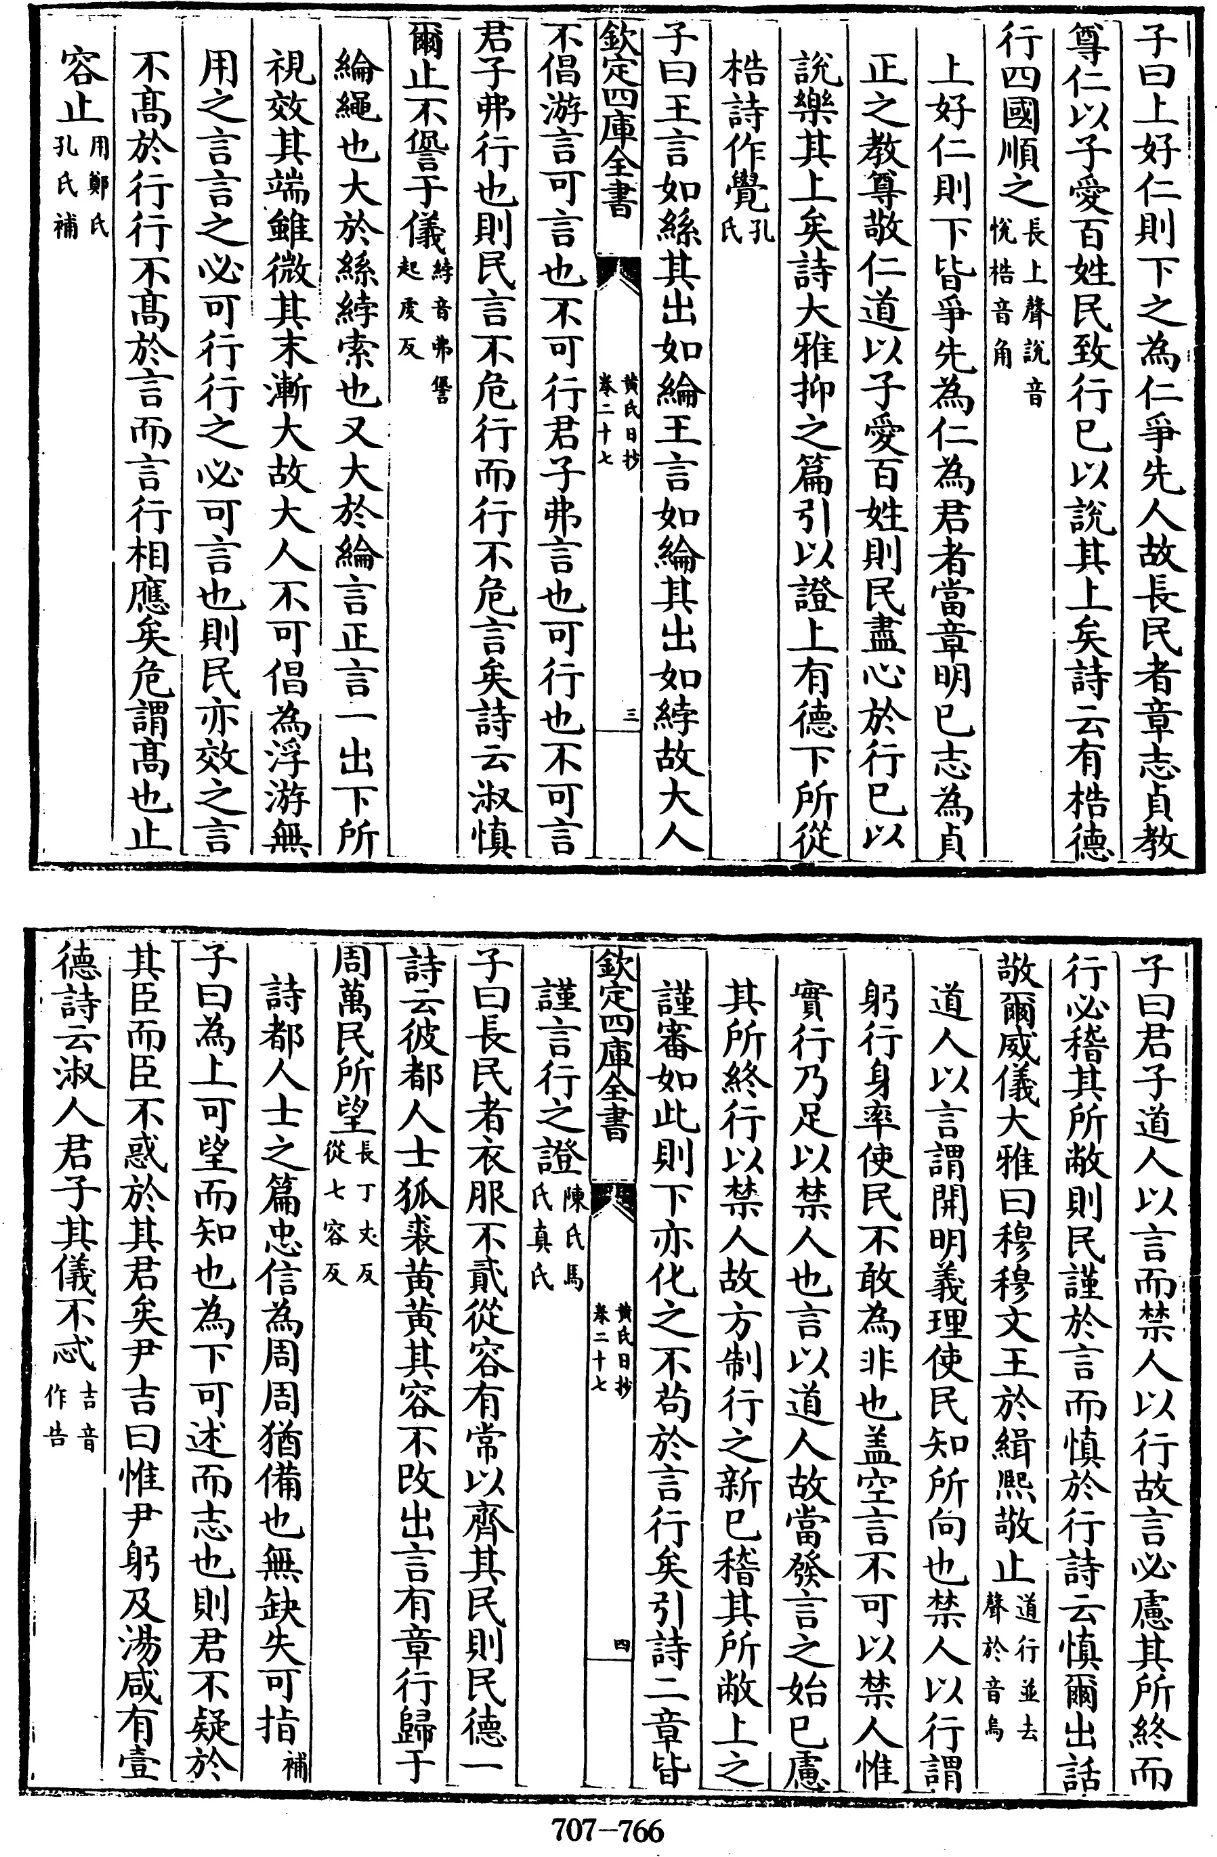 子曰上好仁則下之為仁爭先人故長民者章志貞教
尊仁以子愛百姓民致行已以說其上矣詩云有梏德
行四國順之長上聲說音悅梏音角
上好仁則下皆爭先為仁為君者當章明已志為貞
正之教尊敬仁道以子愛百姓則民盡心於行已以
說樂其上矣詩大雅抑之篇引以證上有德下所從
梏詩作覺孔氏
子曰王言如絲其出如綸王言如綸其出如綍故大人
欽定四庫全書 黄氏日抄卷二十七 三
不倡游言可言也不可行君子弗言也可行也不可言
君子弗行也則民言不危行而行不危言矣詩云淑慎
爾止不諐于儀綍音弗諐起虔反
綸繩也大於絲綍索也又大於綸言正言一出下所
視效其端雖微其末漸大故大人不可倡為浮游無
用之言言之必可行行之必可言也則民亦效之言
不髙於行行不髙於言而言行相應矣危謂髙也止
容止用鄭氏孔氏補
子曰君子道人以言而禁人以行故言必慮其所終而
行必稽其所敝則民謹於言而慎於行詩云慎爾出話
敬爾威儀大雅曰穆穆文王於緝熙敬止道行並去聲於音烏
道人以言謂開明義理使民知所向也禁人以行謂
躬行身率使民不敢為非也盖空言不可以禁人惟
實行乃足以禁人也言以道人故當發言之始已慮
其所終行以禁人故方制行之新已稽其所敝上之
謹審如此則下亦化之不苟於言行矣引詩二章皆
欽定四庫全書 黄氏日抄卷二十七 四
謹言行之證陳氏馬氏真氏
子曰長民者衣服不貳從容有常以齊其民則民德一
詩云彼都人士狐裘黄黄其容不改出言有章行歸于
周萬民所望長丁丈反從七容反
詩都人士之篇忠信為周周猶備也無缺失可指補
子曰為上可望而知也為下可述而志也則君不疑於
其臣而臣不惑於其君矣尹吉曰惟尹躬及湯咸有壹
德詩云淑人君子其儀不忒吉音作告
707-766